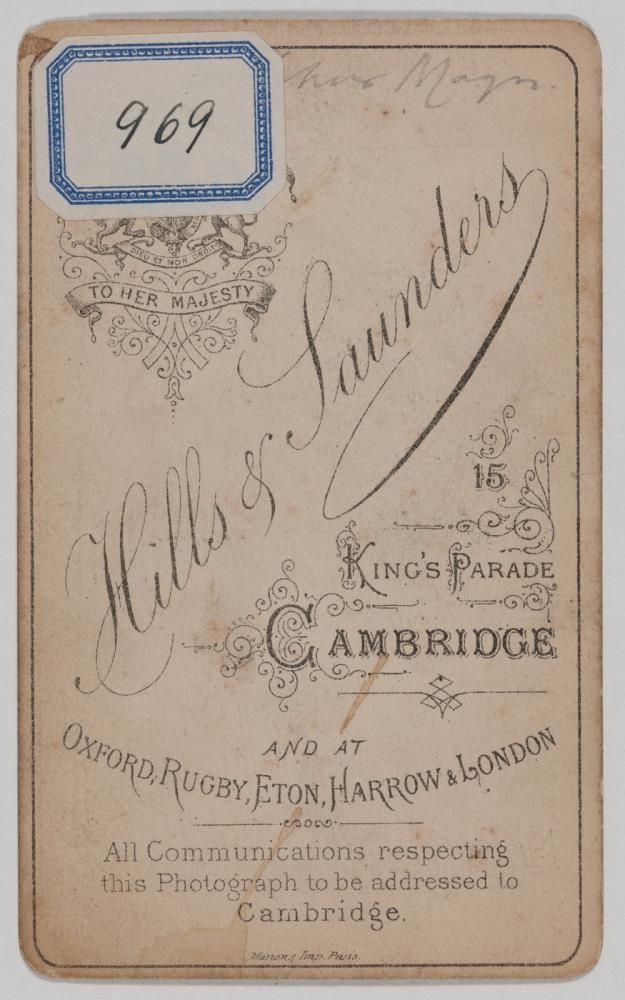 969
DIEU ET MON DROIT
TO HER MAJESTY
Hills & Saunders
15
KING'S PARADE
CAMBRIDGE
AND AT
OXFORD, RUGBY, ETON, HARROW & LONDON
All Communications respecting
this Photograph to be addressed to
Cambridge.
Marion, Imp. Paris.